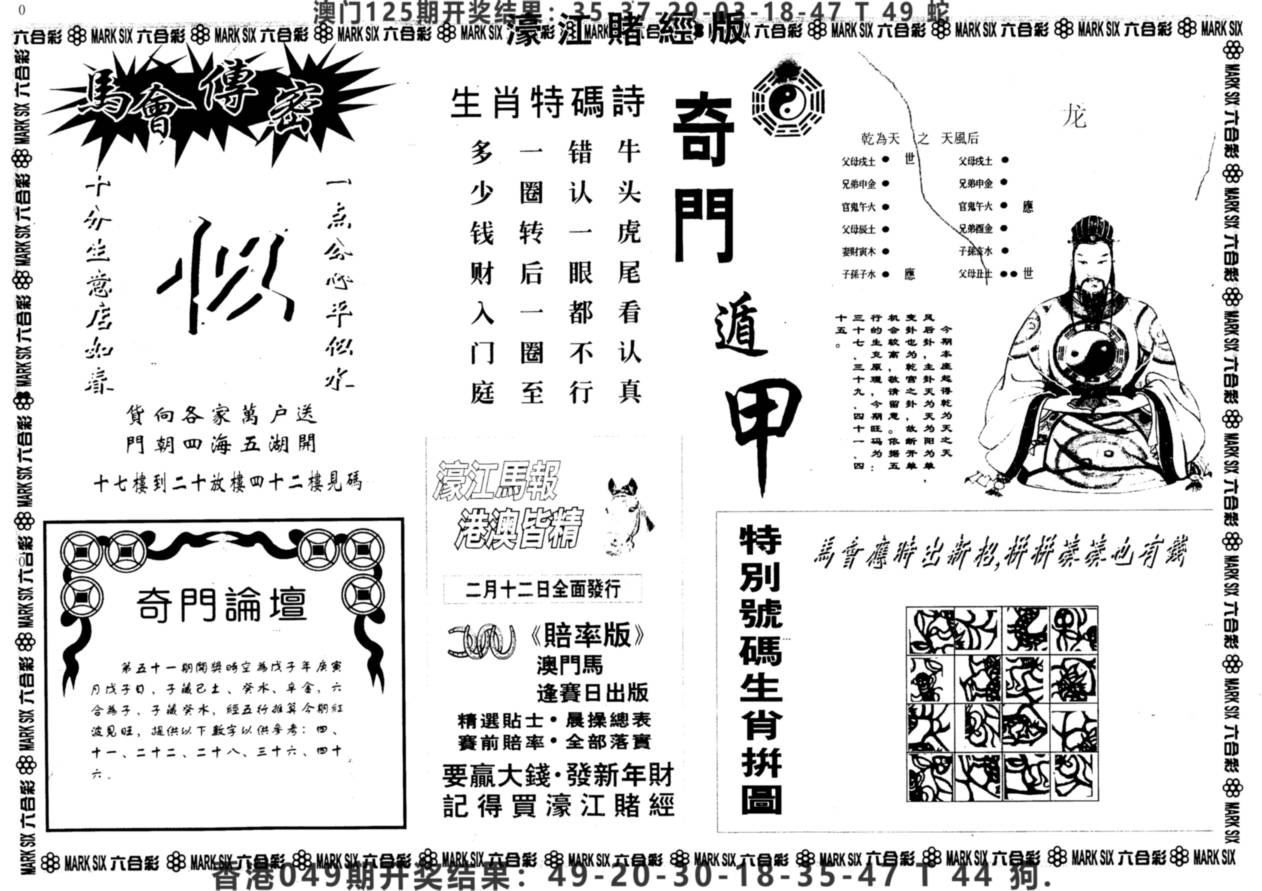 0
澳门125期开奖结果：35-37-29-03-18-47 T 49 蛇
濠江賭經版
六合彩 MARK SIX 六合彩 MARK SIX 六合彩 MARK SIX 六合彩 MARK SIX
馬會傳密
一点公心平似水
十分生意店如春
似
貨向各家萬户送
門朝四海五湖開
十七樓到二十放樓四十二樓見碼
生肖特碼詩
牛头虎尾看认真
错认一眼都不行
一圈转后一圈至
多少钱财入门庭
奇門遁甲
龙
乾為天 之 天風后
父母戌土 世
兄弟申金
官鬼午火
父母辰土
妻财寅木
子孫子水 應
父母戌土
兄弟申金
官鬼午火 應
兄弟酉金
子孫亥水
父母丑土 世
濠江馬報
港澳皆精
二月十二日全面發行
《賠率版》
澳門馬
逢賽日出版
精選貼士·晨操總表
賽前賠率·全部落實
要贏大錢·發新年財
記得買濠江賭經
奇門論壇
第五十一期開獎時空為戊子年庚寅
月戊子日，子藏己土、癸水、辛金，六
合為子、子藏癸水，經五行推算今期紅
波見旺，提供以下數字以供參考：四、
十一、二十二、二十八、三十六、四十
六。
特別號碼生肖拼圖
馬會應時出新招,拼拼湊湊也有錢
MARK SIX 六合彩 MARK SIX 六合彩 MARK SIX 六合彩
香港049期开奖结果：49-20-30-18-35-47 T 44 狗.